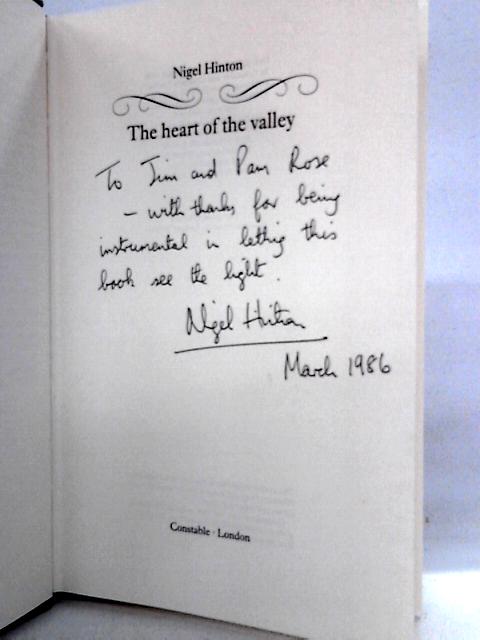 Nigel Hinton
The heart of the valley
To Jim and Pam Rose
– with thanks for being
instrumental in letting this
book see the light.
Nigel Hinton
March 1986
Constable · London